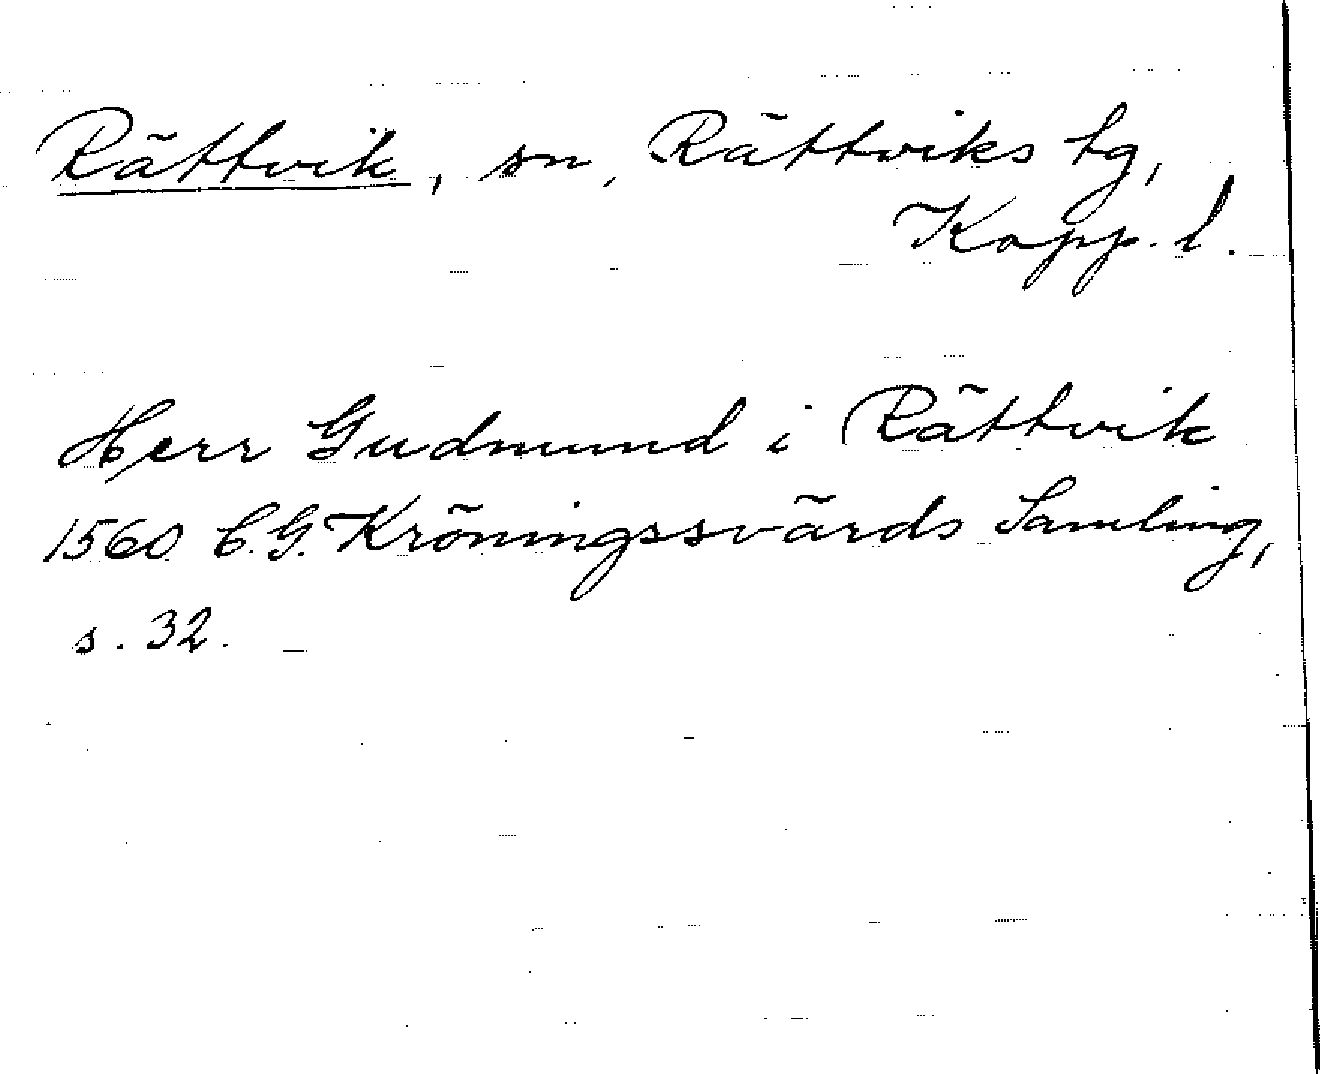 Rättvik, sn, Rättviks tg,
Kopp. l.
Herr Gudmund i Rättvik
1560 C.G. Kröningssvärds Samling,
s. 32.